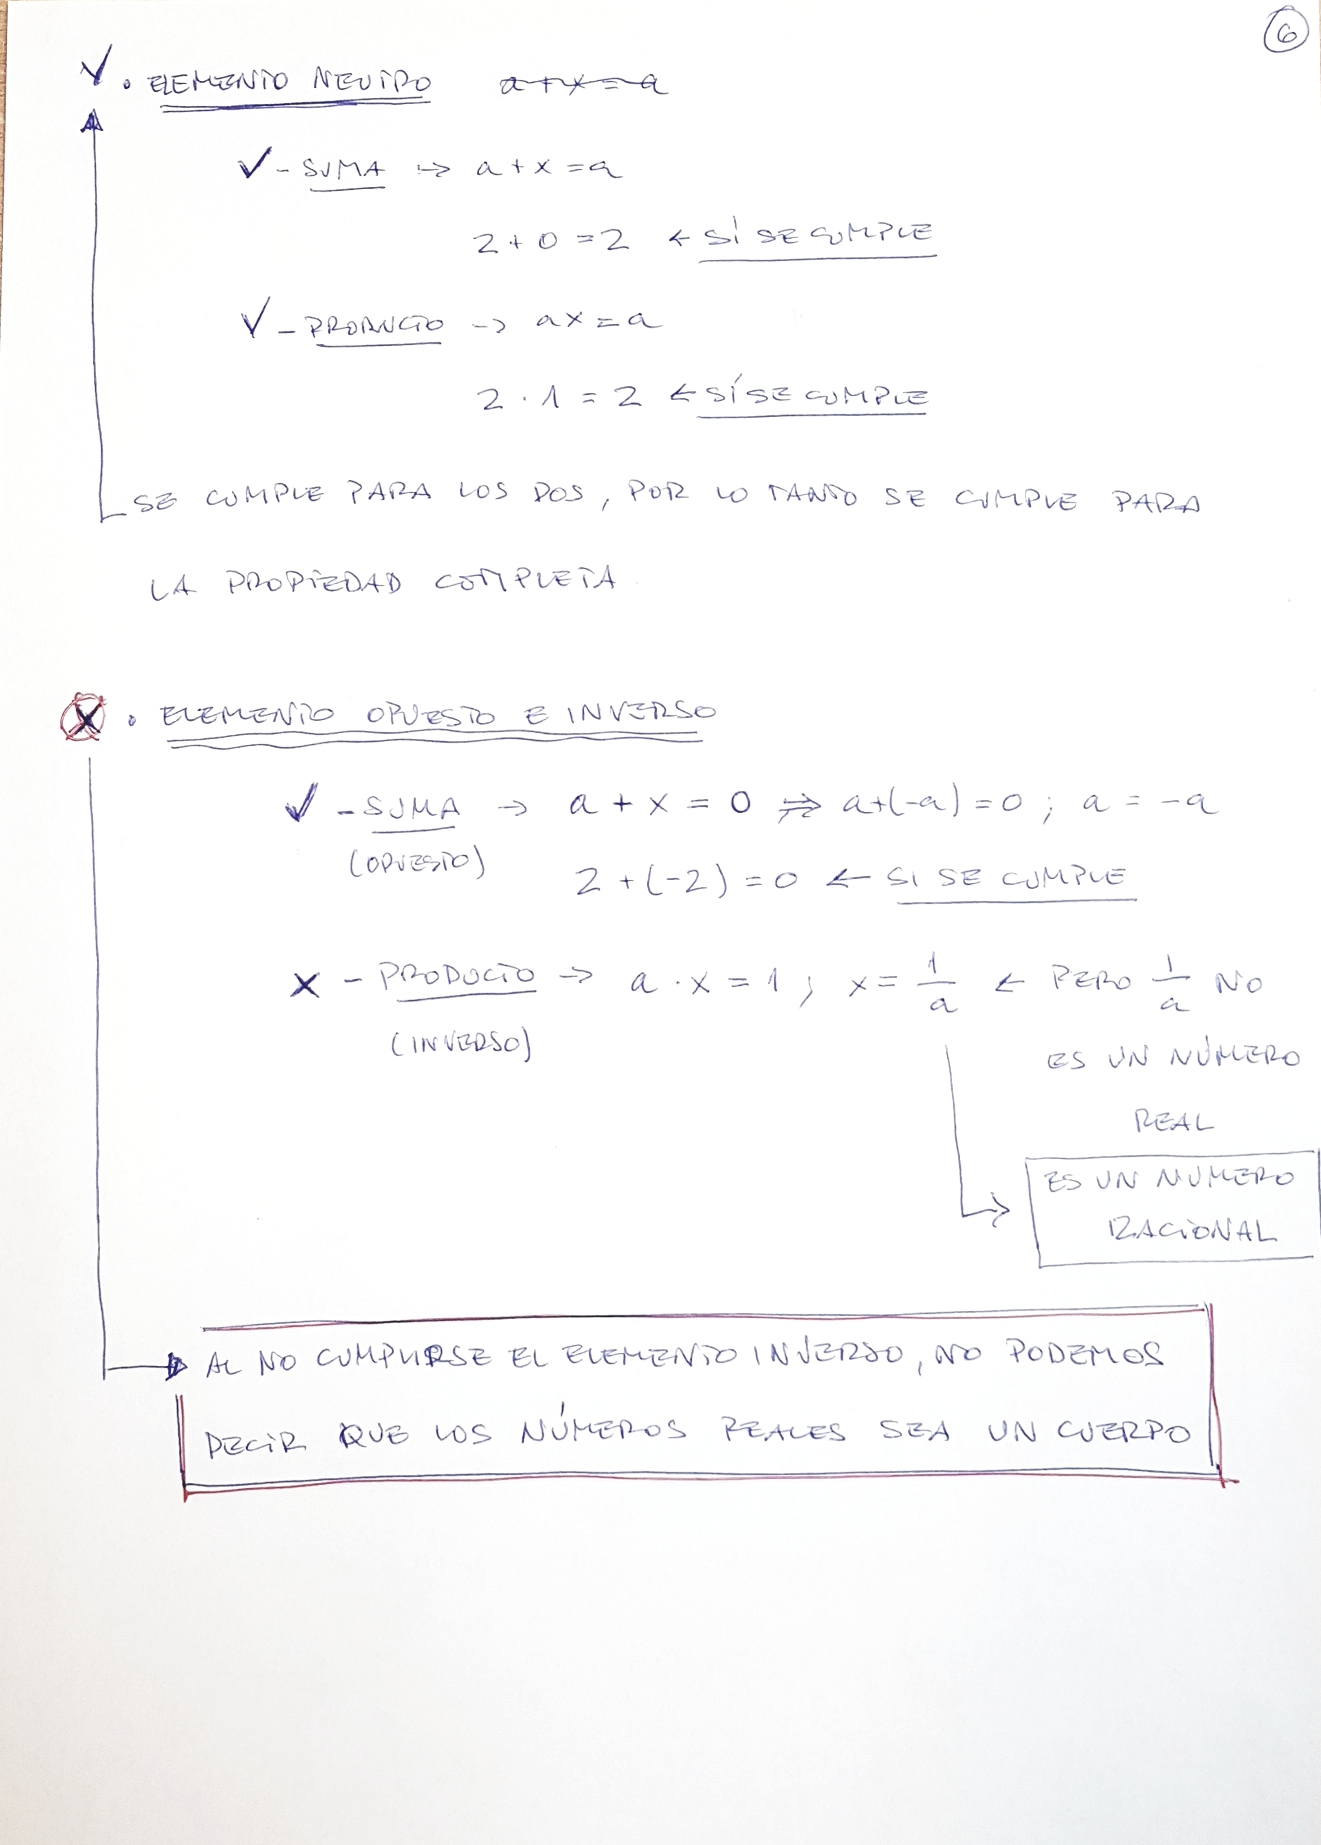 6
• ELEMENTO NEUTRO a+x=a
✓ - SUMA → a+x=a
2+0=2 ← SÍ SE CUMPLE
✓ - PRODUCTO → ax=a
2·1=2 ← SÍ SE CUMPLE
SE CUMPLE PARA LOS DOS, POR LO TANTO SE CUMPLE PARA
LA PROPIEDAD COMPLETA
X • ELEMENTO OPUESTO E INVERSO
✓ - SUMA → a+x=0 ⇒ a+(-a)=0; a=-a
(OPUESTO)
2+(-2)=0 ← SI SE CUMPLE
X - PRODUCTO → a·x=1; x=1/a ← PERO 1/a NO
(INVERSO)
ES UN NÚMERO
REAL
ES UN NUMERO
RACIONAL
AL NO CUMPLIRSE EL ELEMENTO INVERSO, NO PODEMOS
DECIR QUE LOS NÚMEROS REALES SEA UN CUERPO